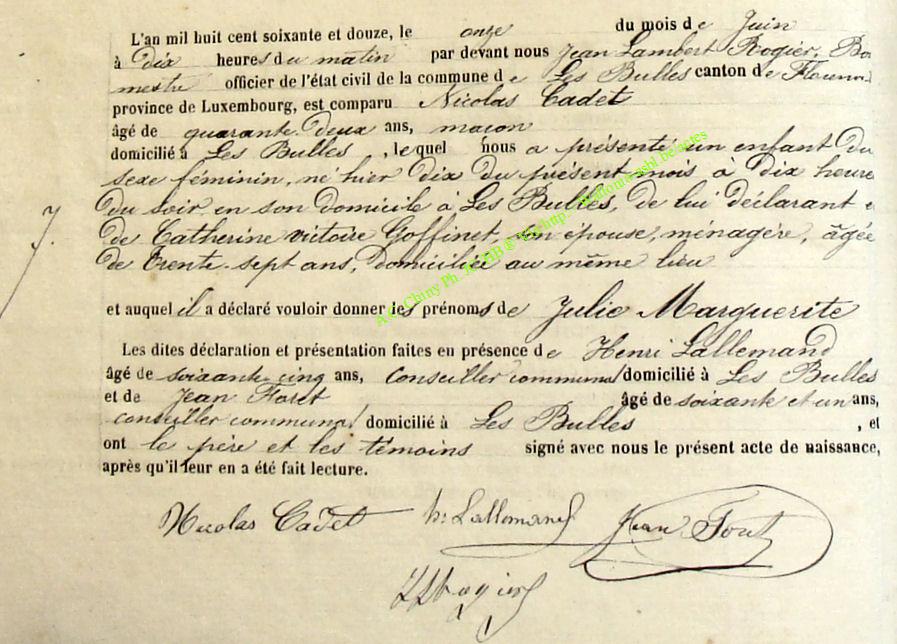 L'an mil huit cent soixante et douze, le onze du mois de Juin
à dix heures du matin par devant nous Jean Lambert Rogier, Bo
mestre officier de l'état civil de la commune de Les Bulles canton de Floren
province de Luxembourg, est comparu Nicolas Cadet
âgé de quarante-deux ans, maçon
domicilié à Les Bulles, lequel nous a présenté un enfant du
sexe féminin, né hier dix du présent mois à dix heure
du soir en son domicile à Les Bulles, de lui déclarant e
7. de Catherine Victoire Goffinet, son épouse, ménagère, âgée
de trente-sept ans, domiciliée au même lieu
et auquel il a déclaré vouloir donner les prénoms de Julie Marguerite
Les dites déclaration et présentation faites en présence de Henri Lallemand
âgé de soixante cinq ans, conseiller communal domicilié à Les Bulles
et de Jean Foret âgé de soixante et un ans,
conseiller communal domicilié à Les Bulles, et
ont le père et les témoins signé avec nous le présent acte de naissance,
après qu'il leur en a été fait lecture.
Nicolas Cadet h. Lallemand Jean
JLRogier